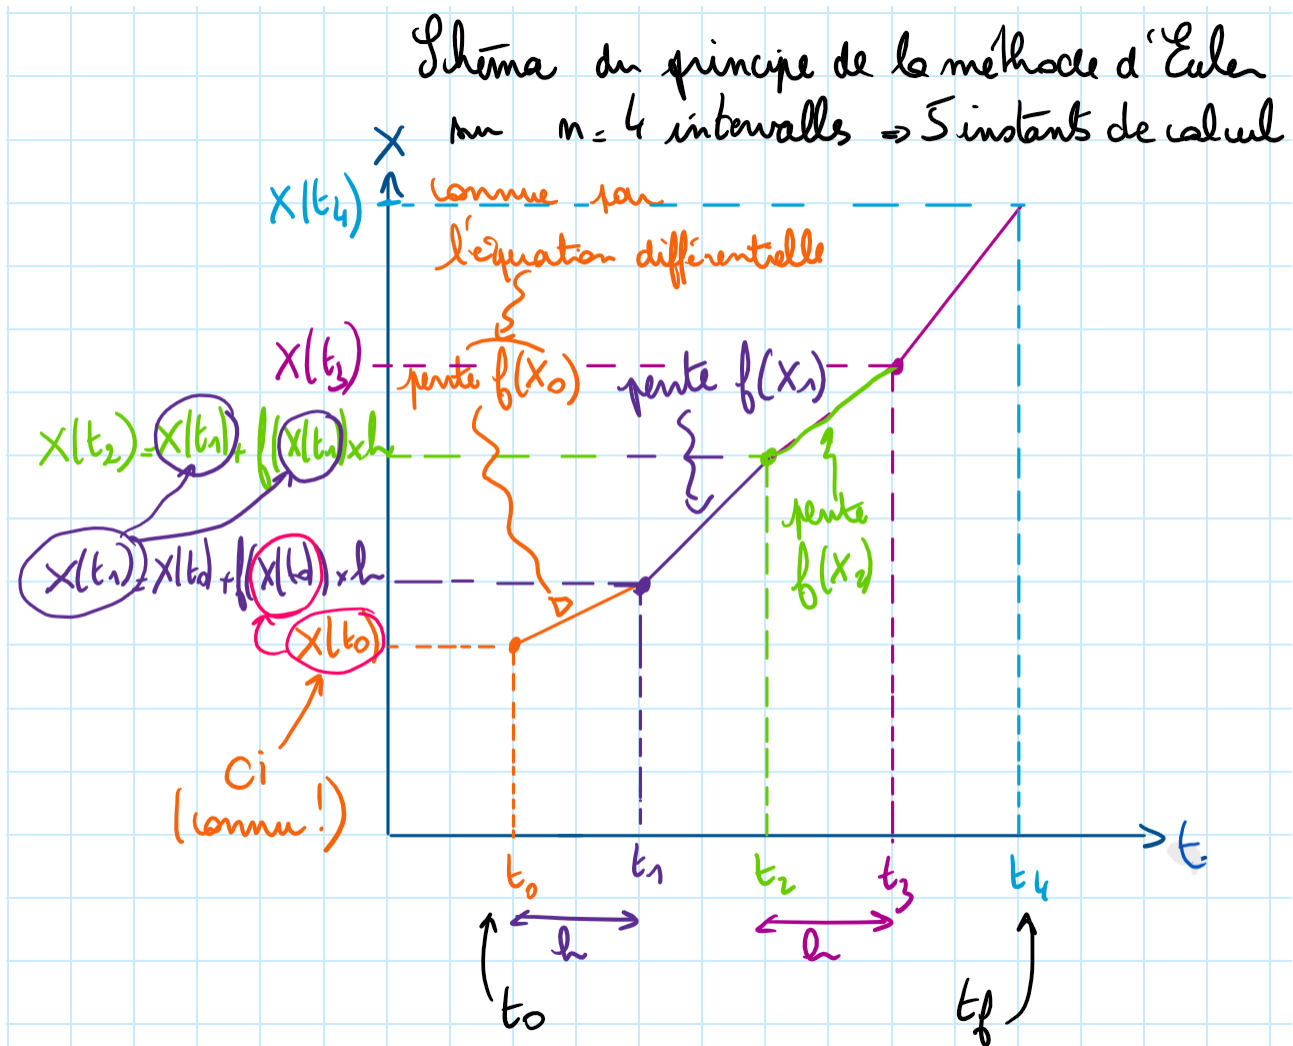 Schéma du principe de la méthode d'Euler
sur n = 4 intervalles ⇒ 5 instants de calcul
X
X(t4)
connue par
l'équation différentielle
X(t3)
pente f(X0)
pente f(X1)
X(t2) = X(t1) + f(X(t1)) × h
pente
f(X2)
X(t1) = X(t0) + f(X(t0)) × h
X(t0)
Ci
(connu !)
t
t0
t1
t2
t3
t4
h
h
t0
tf